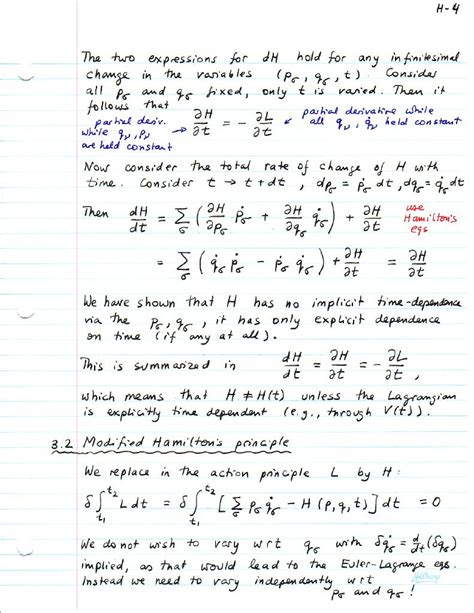 H-4
The two expressions for dH hold for any infinitesimal
change in the variables (pσ, qσ, t). Consider
all pσ and qσ fixed, only t is varied. Then it
follows that
partial deriv. while qν, pν are held constant → ∂H/∂t = - ∂L/∂t ← partial derivative while all qν, q̇ν held constant
Now consider the total rate of change of H with
time. Consider t → t + dt, dpσ = ṗσ dt, dqσ = q̇σ dt
Then dH/dt = Σσ (∂H/∂pσ ṗσ + ∂H/∂qσ q̇σ) + ∂H/∂t use Hamilton's eqs
= Σσ (q̇σ ṗσ - ṗσ q̇σ) + ∂H/∂t = ∂H/∂t
We have shown that H has no implicit time-dependence
via the pσ, qσ, it has only explicit dependence
on time (if any at all).
This is summarized in dH/dt = ∂H/∂t = - ∂L/∂t ,
which means that H ≠ H(t) unless the Lagrangian
is explicitly time dependent (e.g., through V(t)).
3.2 Modified Hamilton's principle
We replace in the action principle L by H:
δ∫t₁^t₂ L dt = δ∫t₁^t₂ [Σσ pσ q̇σ - H(p,q,t)] dt = 0
We do not wish to vary wrt qσ with δq̇σ = d/dt(δqσ)
implied, as that would lead to the Euler-Lagrange eqs.
Instead we need to vary independently wrt
pσ and qσ !